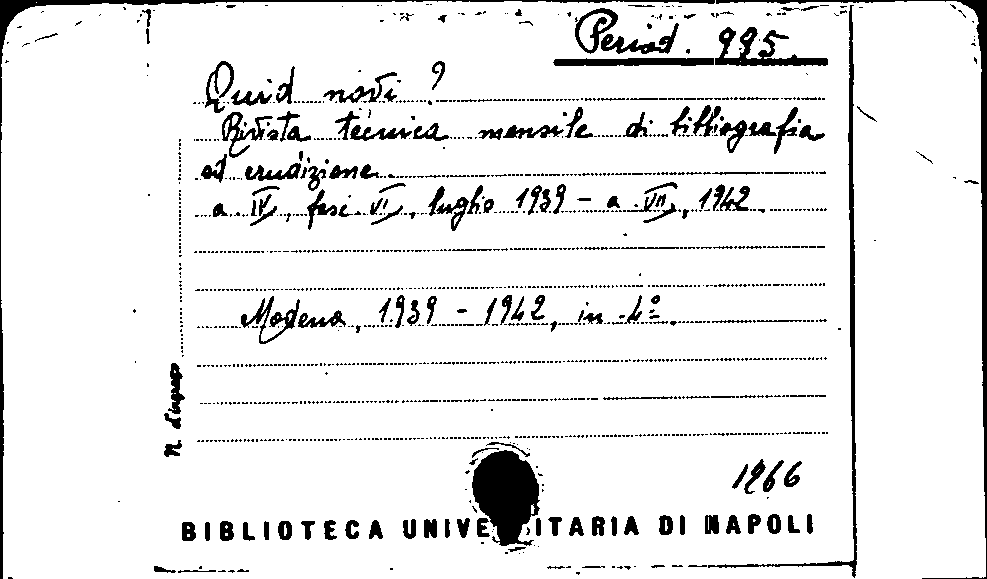 Period. 995.
Quid novi ?
Rivista tecnica mensile di bibliografia
ed erudizione.
a. IV, fasc. VI, luglio 1939 - a. VII, 1942.
Modena, 1939 - 1942, in -4º.
N. d'ingresso
1966
BIBLIOTECA UNIVE ITARIA DI NAPOLI